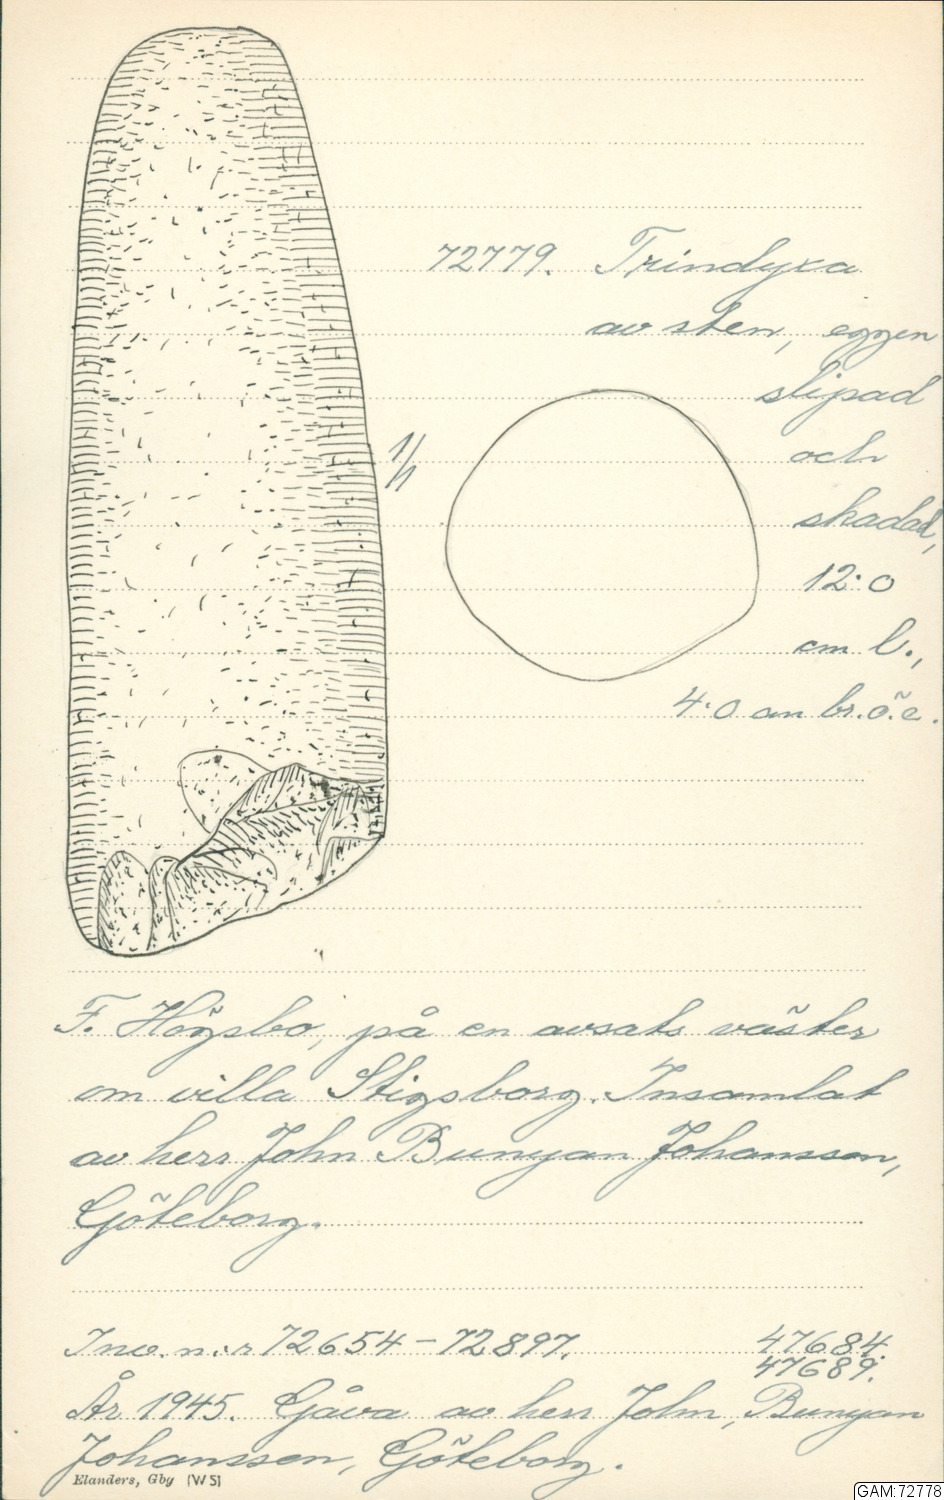 72779. Trindyxa
av sten, eggen
slipad
1/1
och
skadad,
12.0
cm l.,
4.0 cm br. o. e.
F. Högsbo, på en avsats väster
om villa Stigsborg. Insamlat
av herr John Bunyan Johansson,
Göteborg.
Inv. n:r 72654 - 72897. 47684.
47689.
År 1945. Gåva av herr John, Bunyan
Johansson, Göteborg.
Elanders, Gbg (W S)
GAM:72778